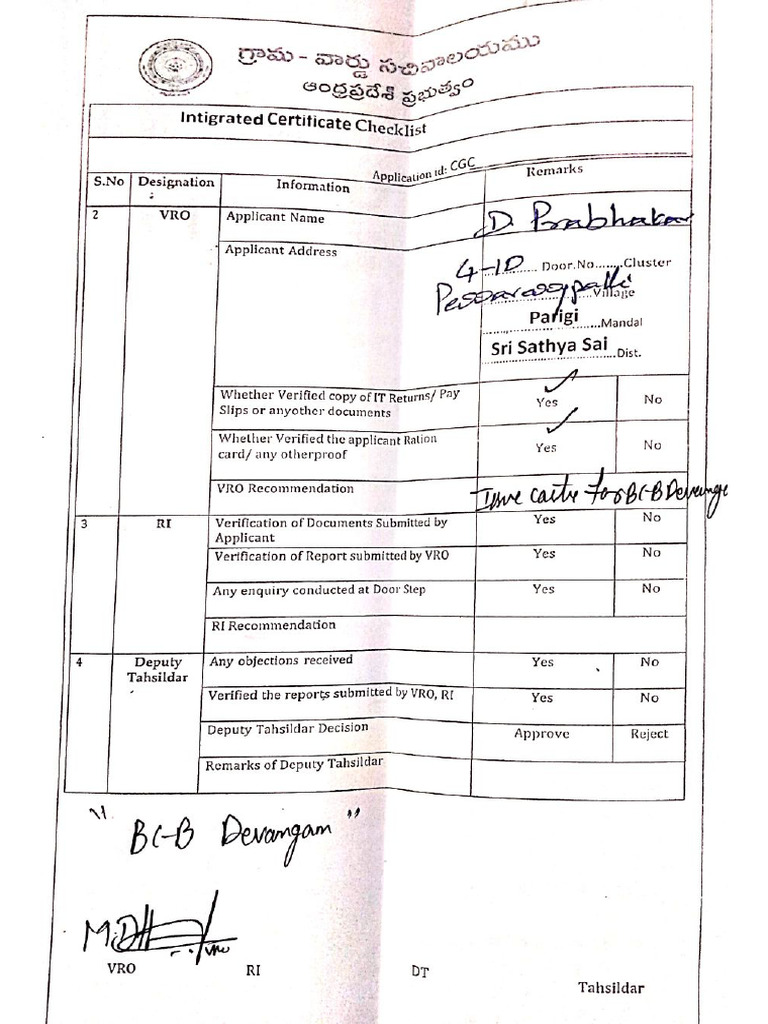 గ్రామ - వార్డు సచివాలయము
ఆంధ్రప్రదేశ్ ప్రభుత్వం
Intigrated Certificate Checklist
Application id: CGC
S.No Designation Information Remarks
2 VRO Applicant Name D. Prabhakar
Applicant Address
4-10 Door.No.......Cluster
Village
Parigi
Mandal
Sri Sathya Sai
Dist.
Whether Verified copy of IT Returns/ Pay
Slips or anyother documents Yes No
Whether Verified the applicant Ration
card/ any otherproof Yes No
VRO Recommendation Issue caste for BC-B Devanga
3 RI Verification of Documents Submitted by
Applicant Yes No
Verification of Report submitted by VRO Yes No
Any enquiry conducted at Door Step Yes No
RI Recommendation
4 Deputy
Tahsildar Any objections received Yes No
Verified the reports submitted by VRO, RI Yes No
Deputy Tahsildar Decision Approve Reject
Remarks of Deputy Tahsildar
" BC-B Devangam "
VRO
VRO RI DT
Tahsildar